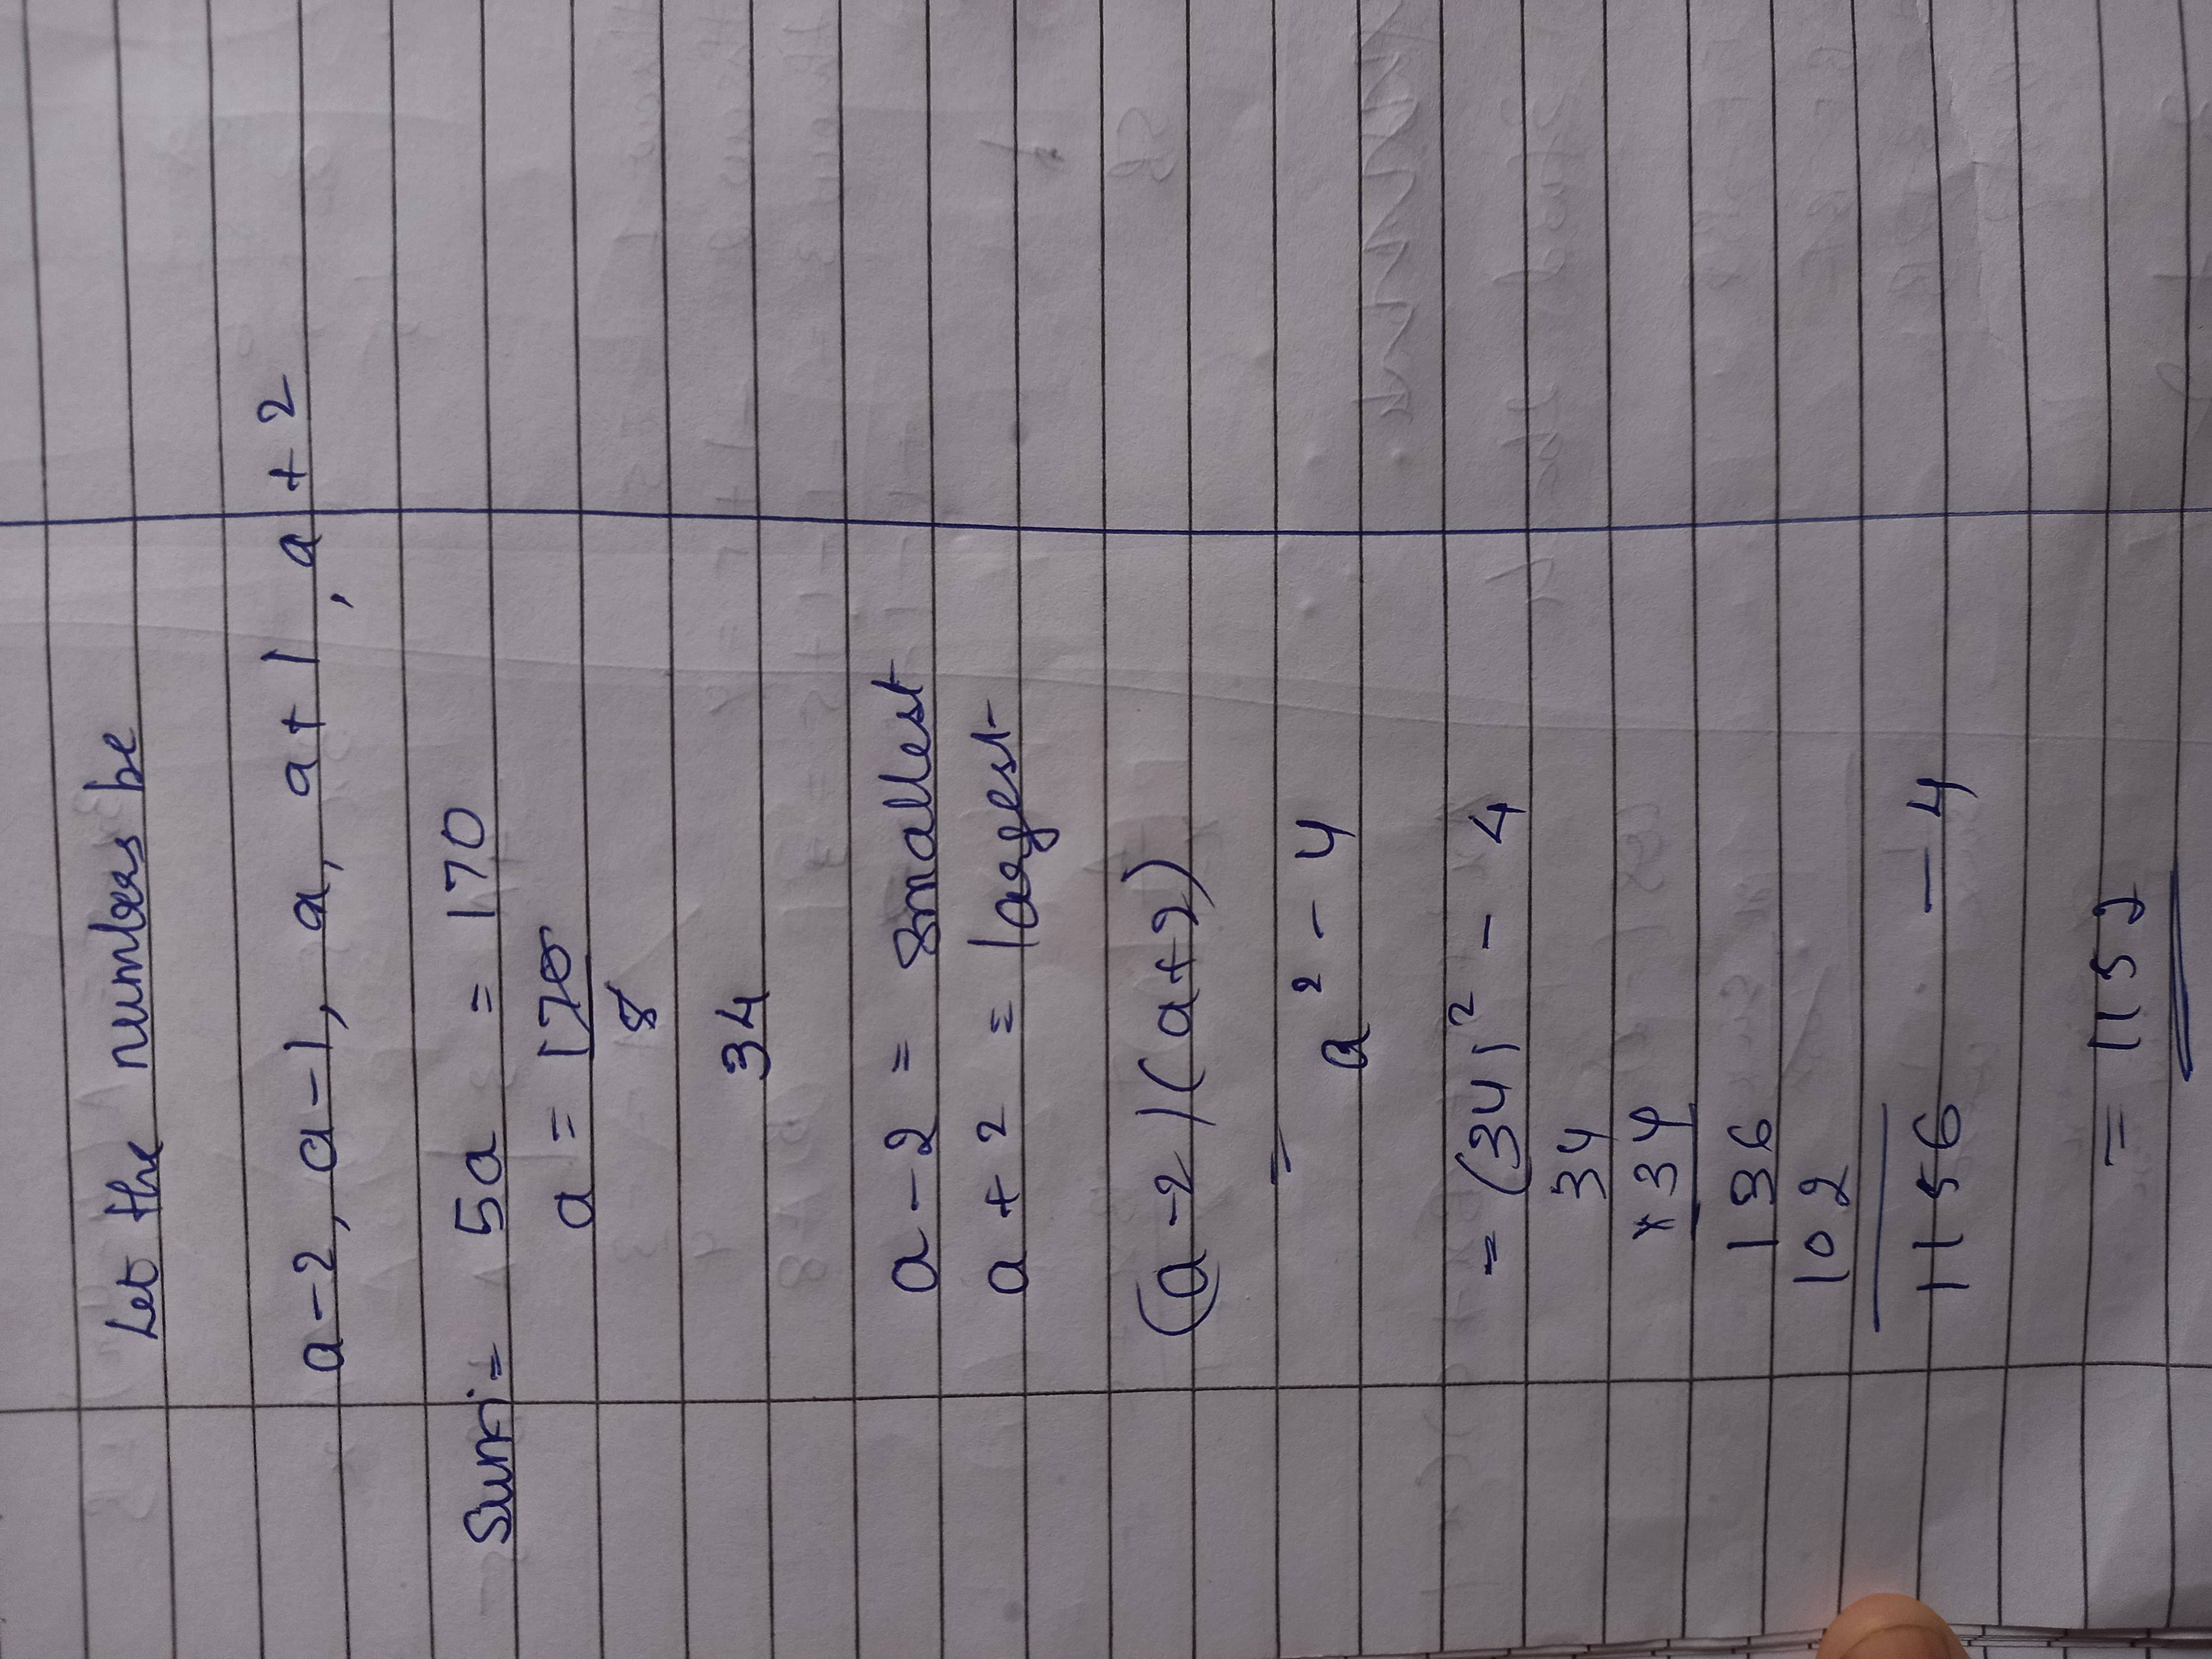 Let the numbers be
a-2, a-1, a, a+1, a+2
Sum = 5a = 170
a = 170
5
34
a-2 = smallest
a+2 = largest
(a-2)(a+2)
= a² - 4
= (34)² - 4
34
×34
136
102
1156 - 4
= 1152